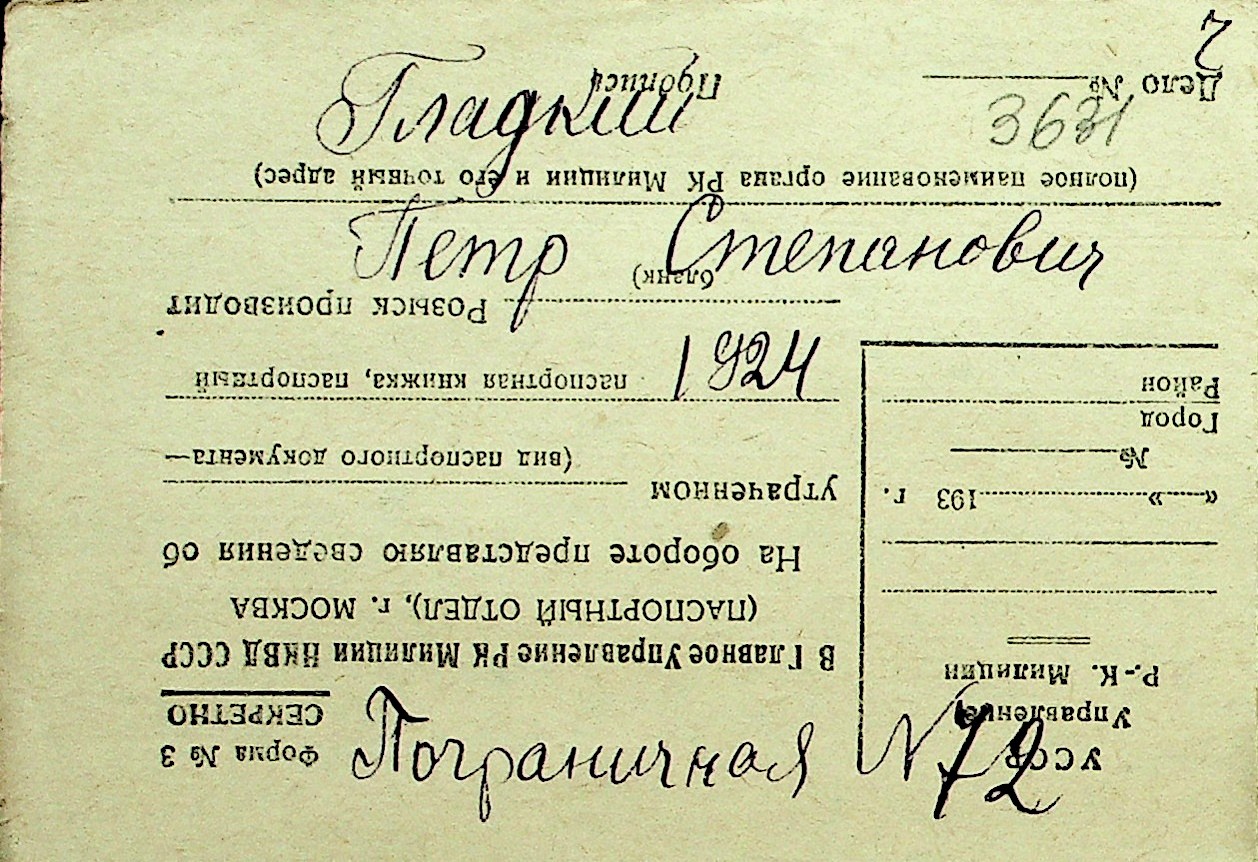 Гладкий
3631
Петр Степанович
1924
Пограничная N 72
УССР
Управление
Р.-К. Милиции
« » 193 г.
№
Город
Район
Форма № 3
СЕКРЕТНО
В Главное Управление РК Милиции НКВД СССР
(ПАСПОРТНЫЙ ОТДЕЛ), г. МОСКВА
На обороте представляю сведения об
утраченном
(вид паспортного документа—
паспортная книжка, паспортный
бланк)
Розыск производит
(полное наименование органа РК Милиции и его точный адрес)
Дело № Подпись